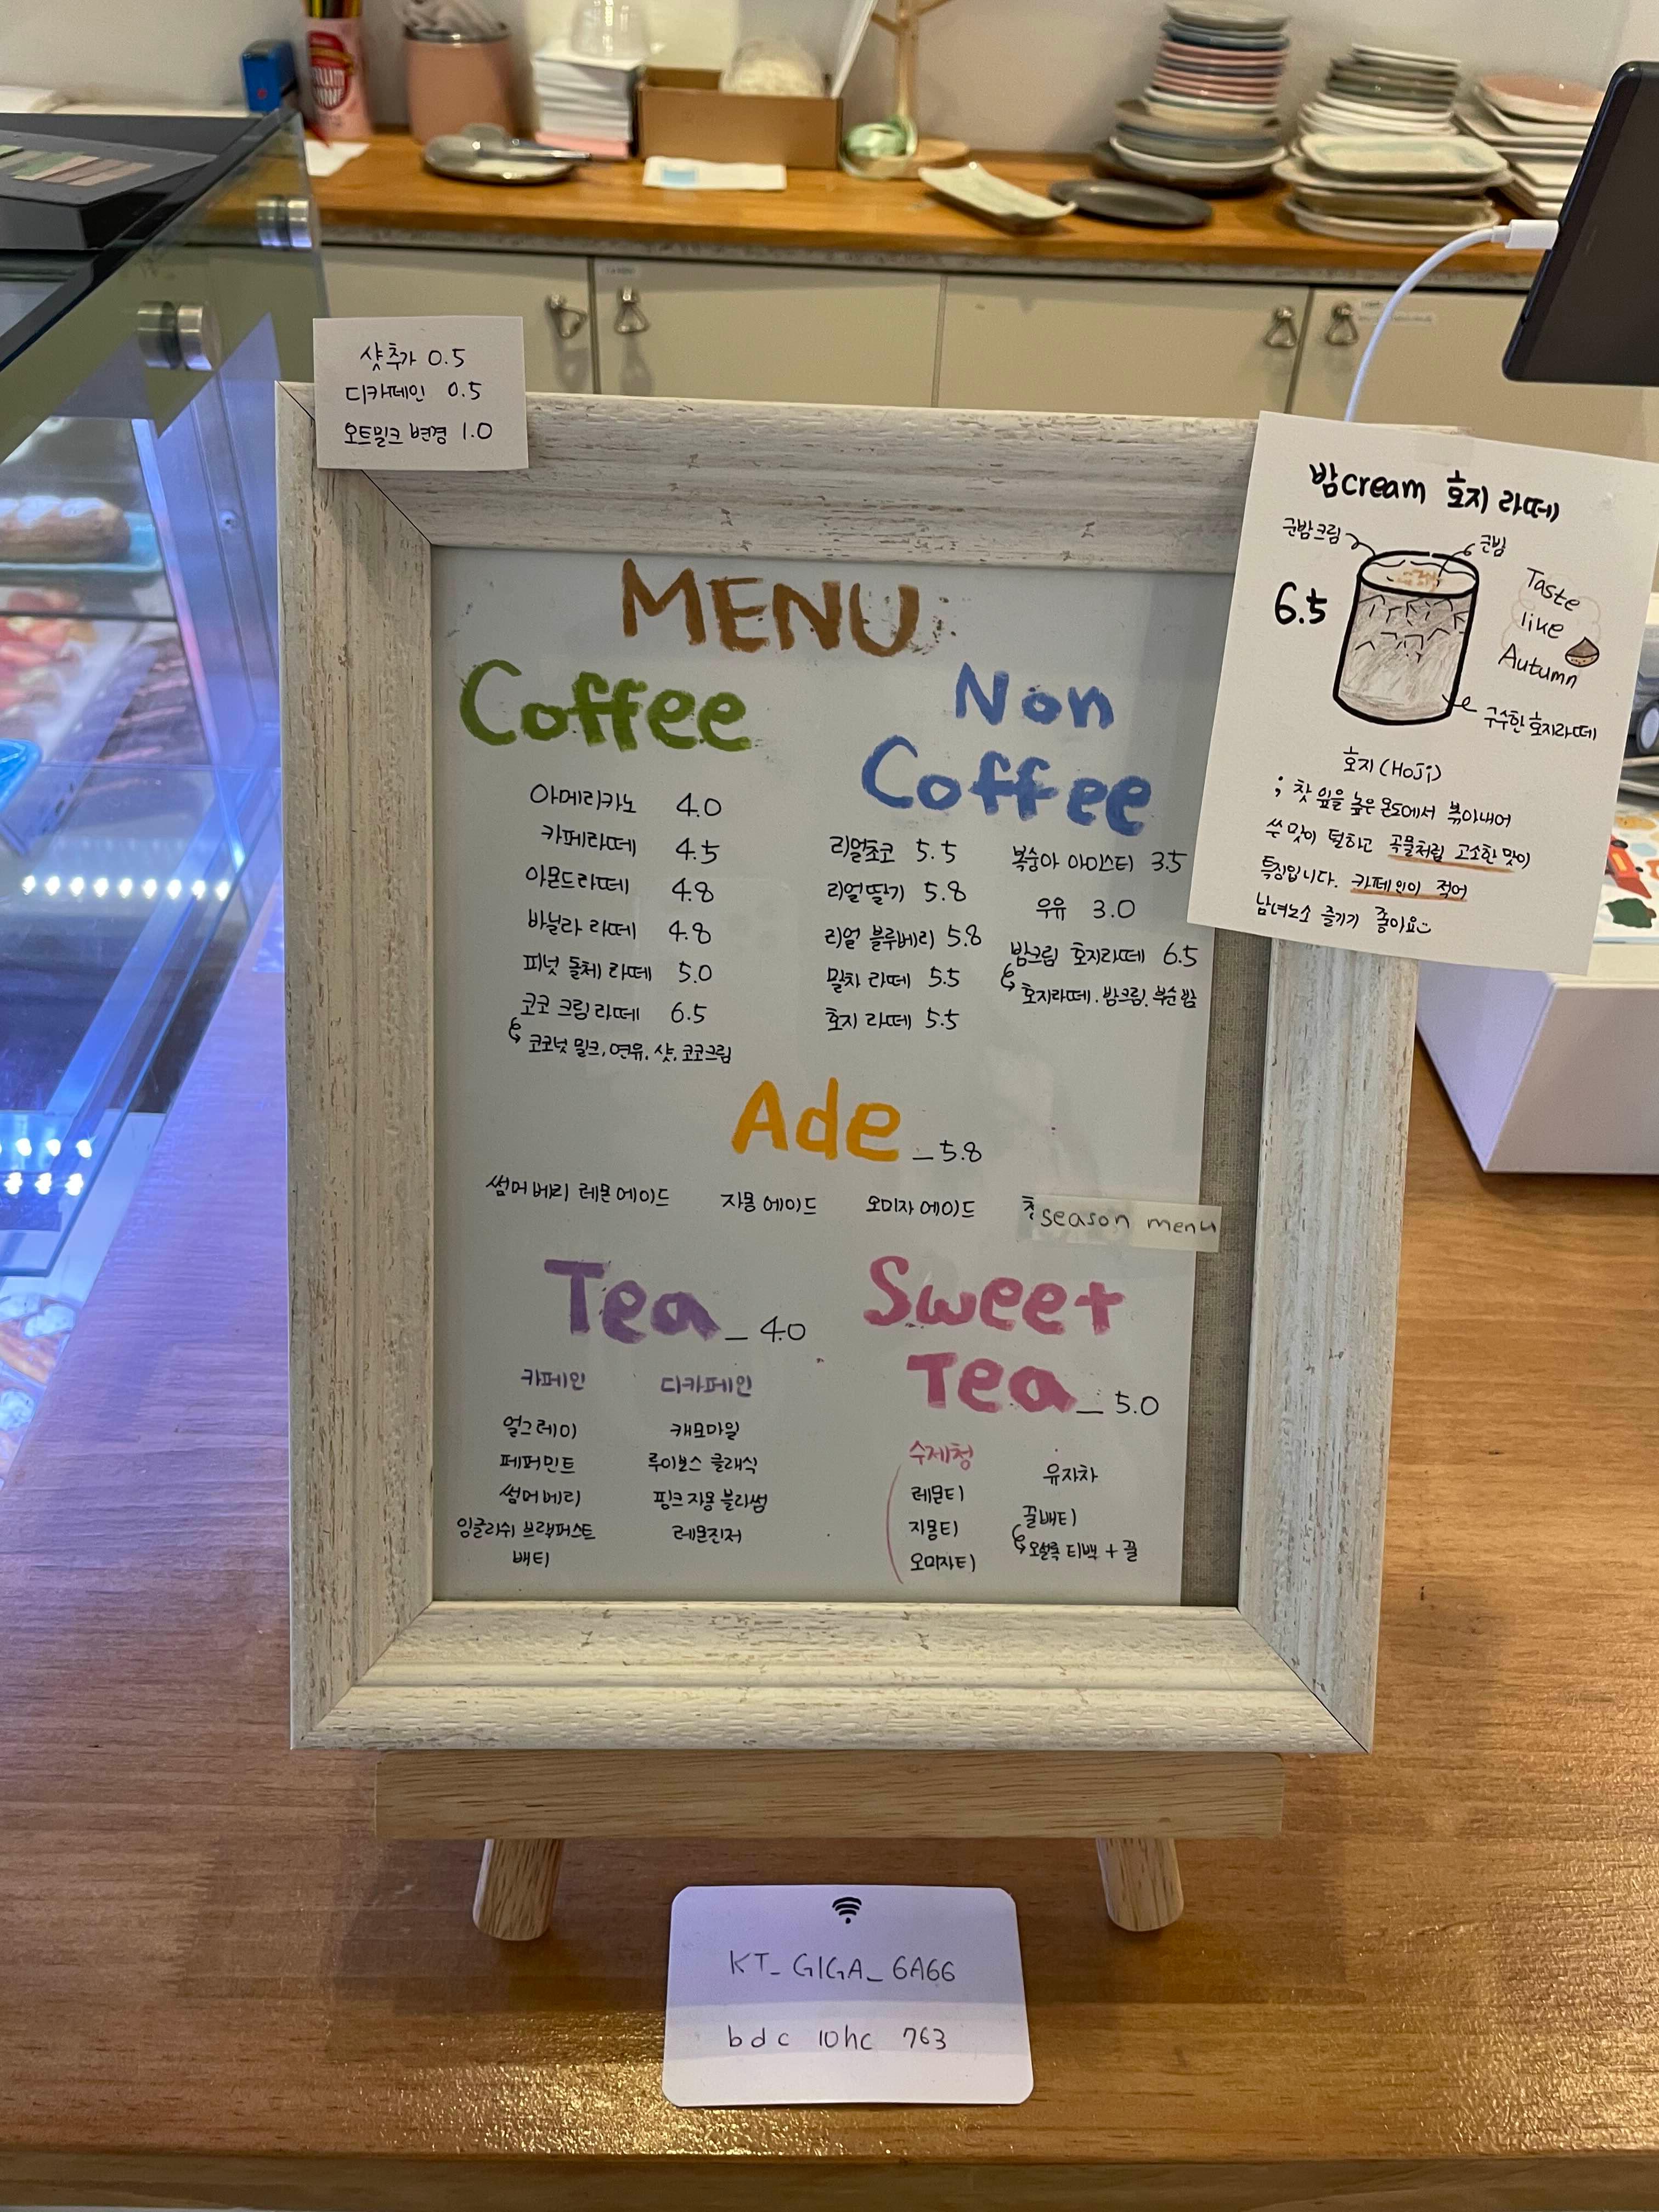 샷추가 0.5
디카페인 0.5
오트밀크 변경 1.0
밤cream 호지 라떼
군밤크림
군밤
6.5
Taste
like
Autumn
구수한 호지라떼
호지 (HoJi)
; 찻 잎을 높은 온도에서 볶아내어
쓴 맛이 덜하고 곡물처럼 고소한 맛이
특징입니다. 카페인이 적어
남녀노소 즐기기 좋아요
MENU
Coffee
아메리카노 4.0
카페라떼 4.5
아몬드라떼 4.8
바닐라 라떼 4.8
피넛 돌체 라떼 5.0
코코 크림 라떼 6.5
코코넛 밀크, 연유, 샷, 코코크림
Non
Coffee
리얼초코 5.5
리얼딸기 5.8
리얼 블루베리 5.8
말차 라떼 5.5
호지 라떼 5.5
복숭아 아이스티 3.5
우유 3.0
밤크림 호지라떼 6.5
호지라떼, 밤크림, 부순 밤
Ade _ 5.8
썸머 베리 레몬 에이드 자몽 에이드 오미자 에이드
season menu
Tea _ 4.0
카페인
얼그레이
페퍼민트
썸머 베리
잉글리쉬 브랙퍼스트
배티
디카페인
캐모마일
루이보스 클래식
핑크 자몽 블라썸
레몬진저
Sweet
Tea _ 5.0
수제청
레몬티
자몽티
오미자티
유자차
꿀배티
오설록 티백 + 꿀
KT_GIGA_6A66
bdc 10hc 763